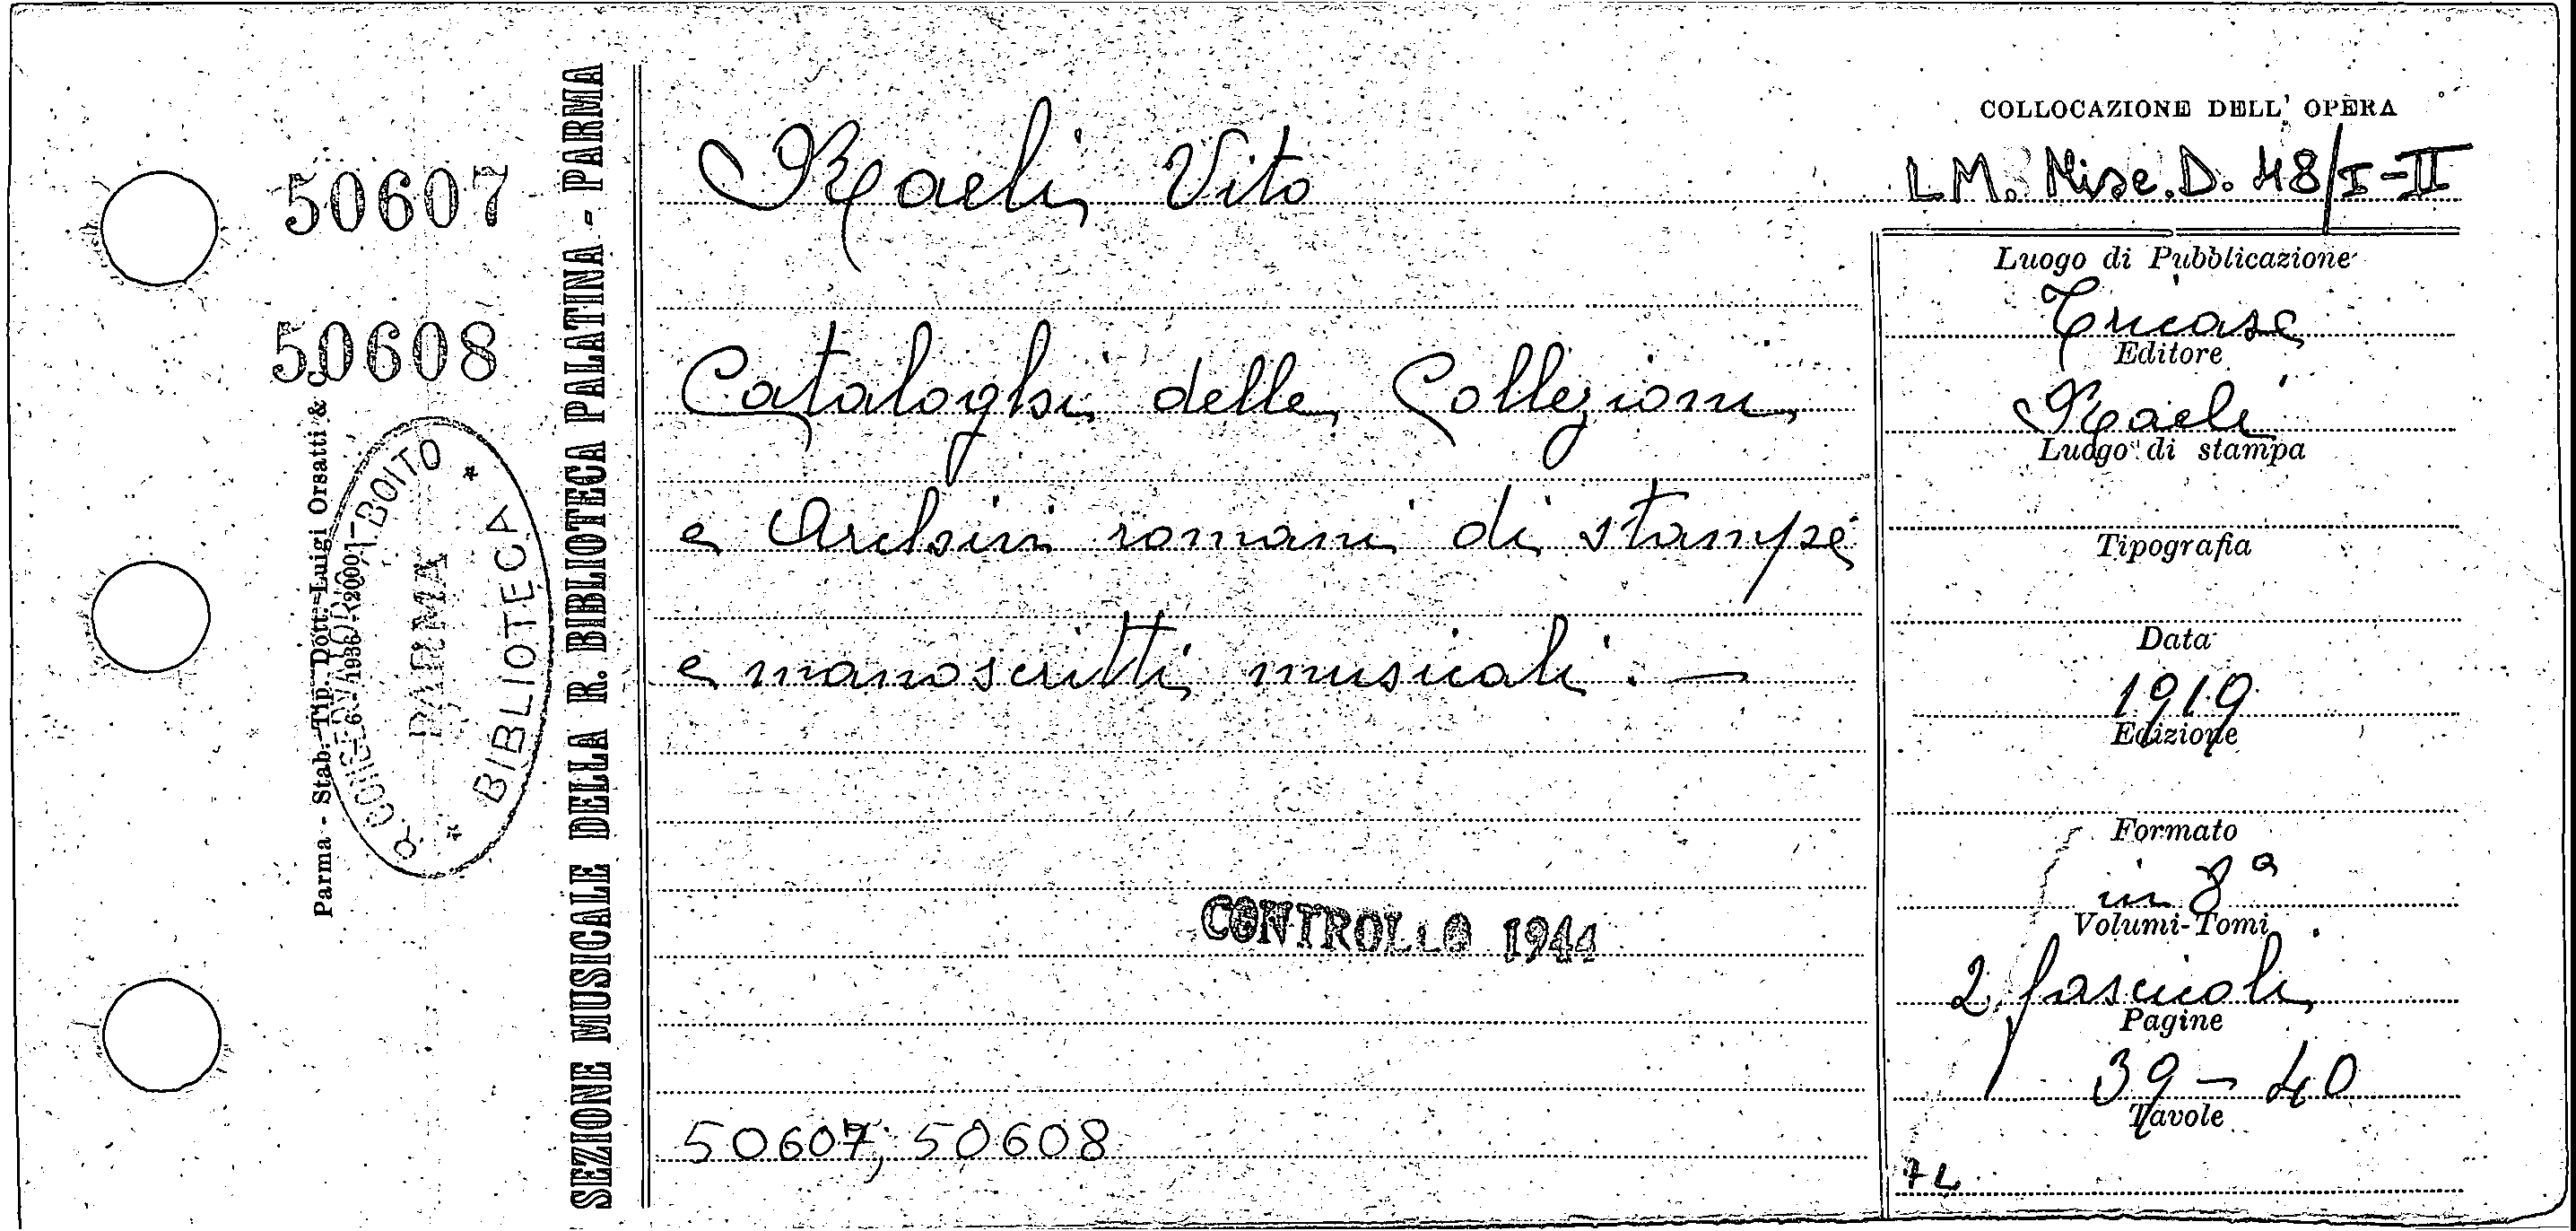 50607
50608
Parma - Stab. Tip. Dott. Luigi Orsatti & C.
BOITO
PARMA
BIBLIOTECA
SEZIONE MUSICALE DELLA R. BIBLIOTECA PALATINA - PARMA
Raeli Vito
Cataloghi delle Collezioni
e Archivi romani di stampe
e manoscritti musicali. —
CONTROLLO 1944
50607, 50608
COLLOCAZIONE DELL' OPERA
L.M. Misc. D. 48/I-II
Luogo di Pubblicazione
Tricase
Editore
Raeli
Luogo di stampa
Tipografia
Data
1919
Edizione
Formato
in 8º
Volumi-Tomi
2 fascicoli
Pagine
39 - 40
Tavole